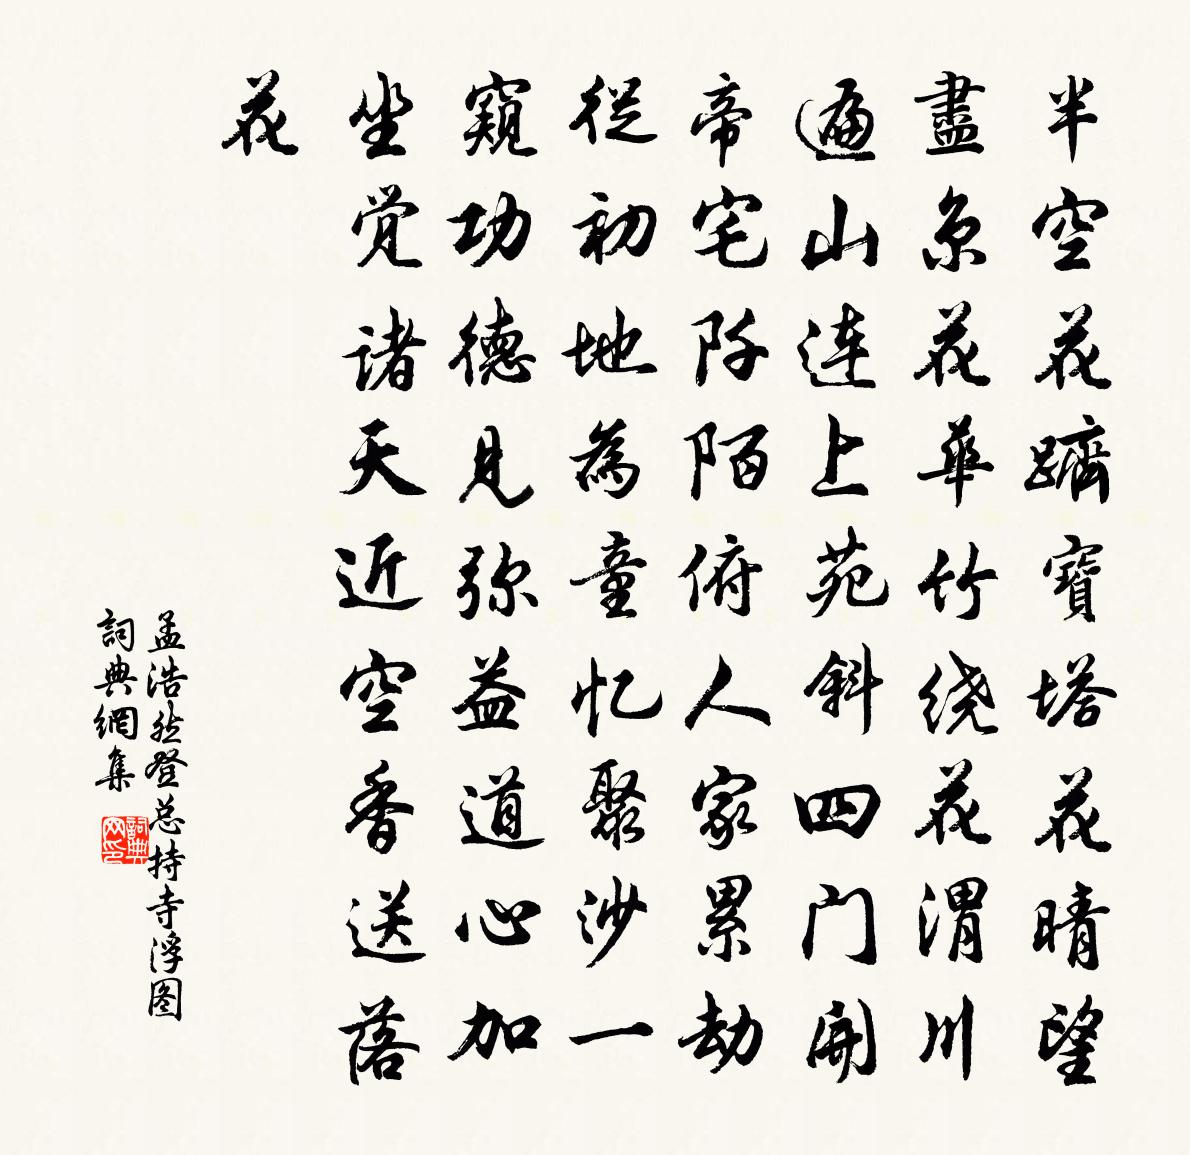 半空花躋寶塔花晴望
盡京花華竹绕花渭川
遍山连上苑斜四门開
帝宅阡陌俯人家累劫
從初地為童忆聚沙一
窺功德見弥益道心加
坐觉諸天近空香送落
花
孟浩然登总持寺浮图
詞典網集